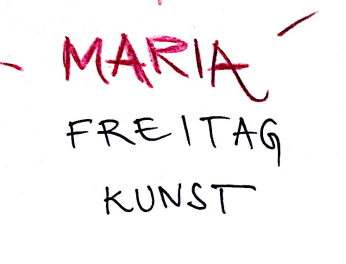 MARIA
FREITAG
KUNST